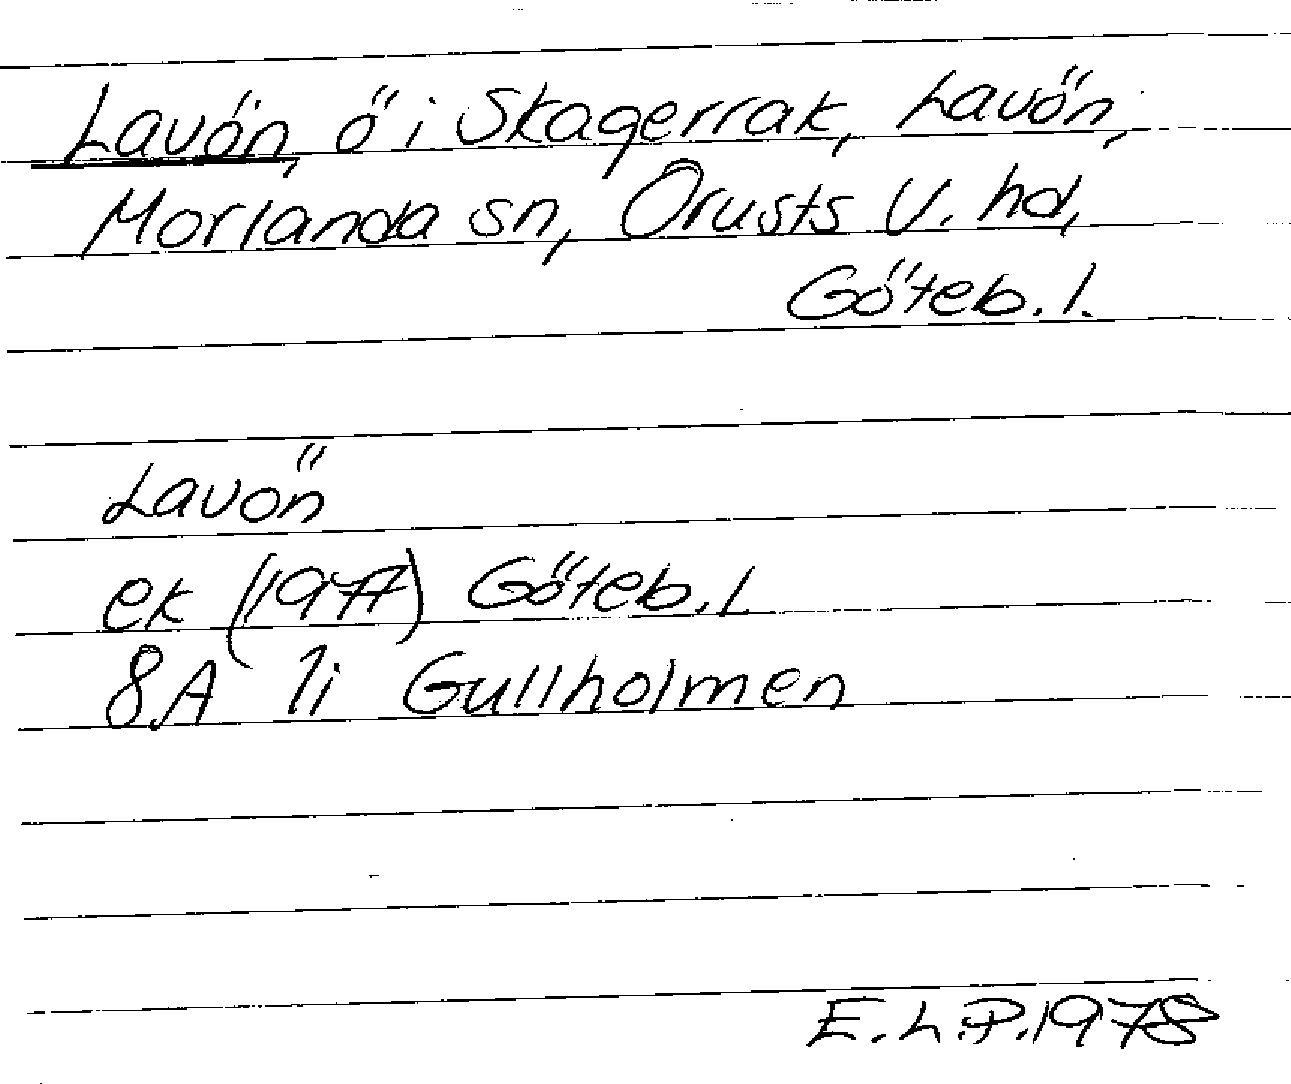 Lavön, ö i Skagerrak, Lavön,
Morlanda sn, Orusts V. hd,
Göteb. l.
Lavön
ek (1977) Göteb. l
8A 1i Gullholmen
E.L.P. 1978